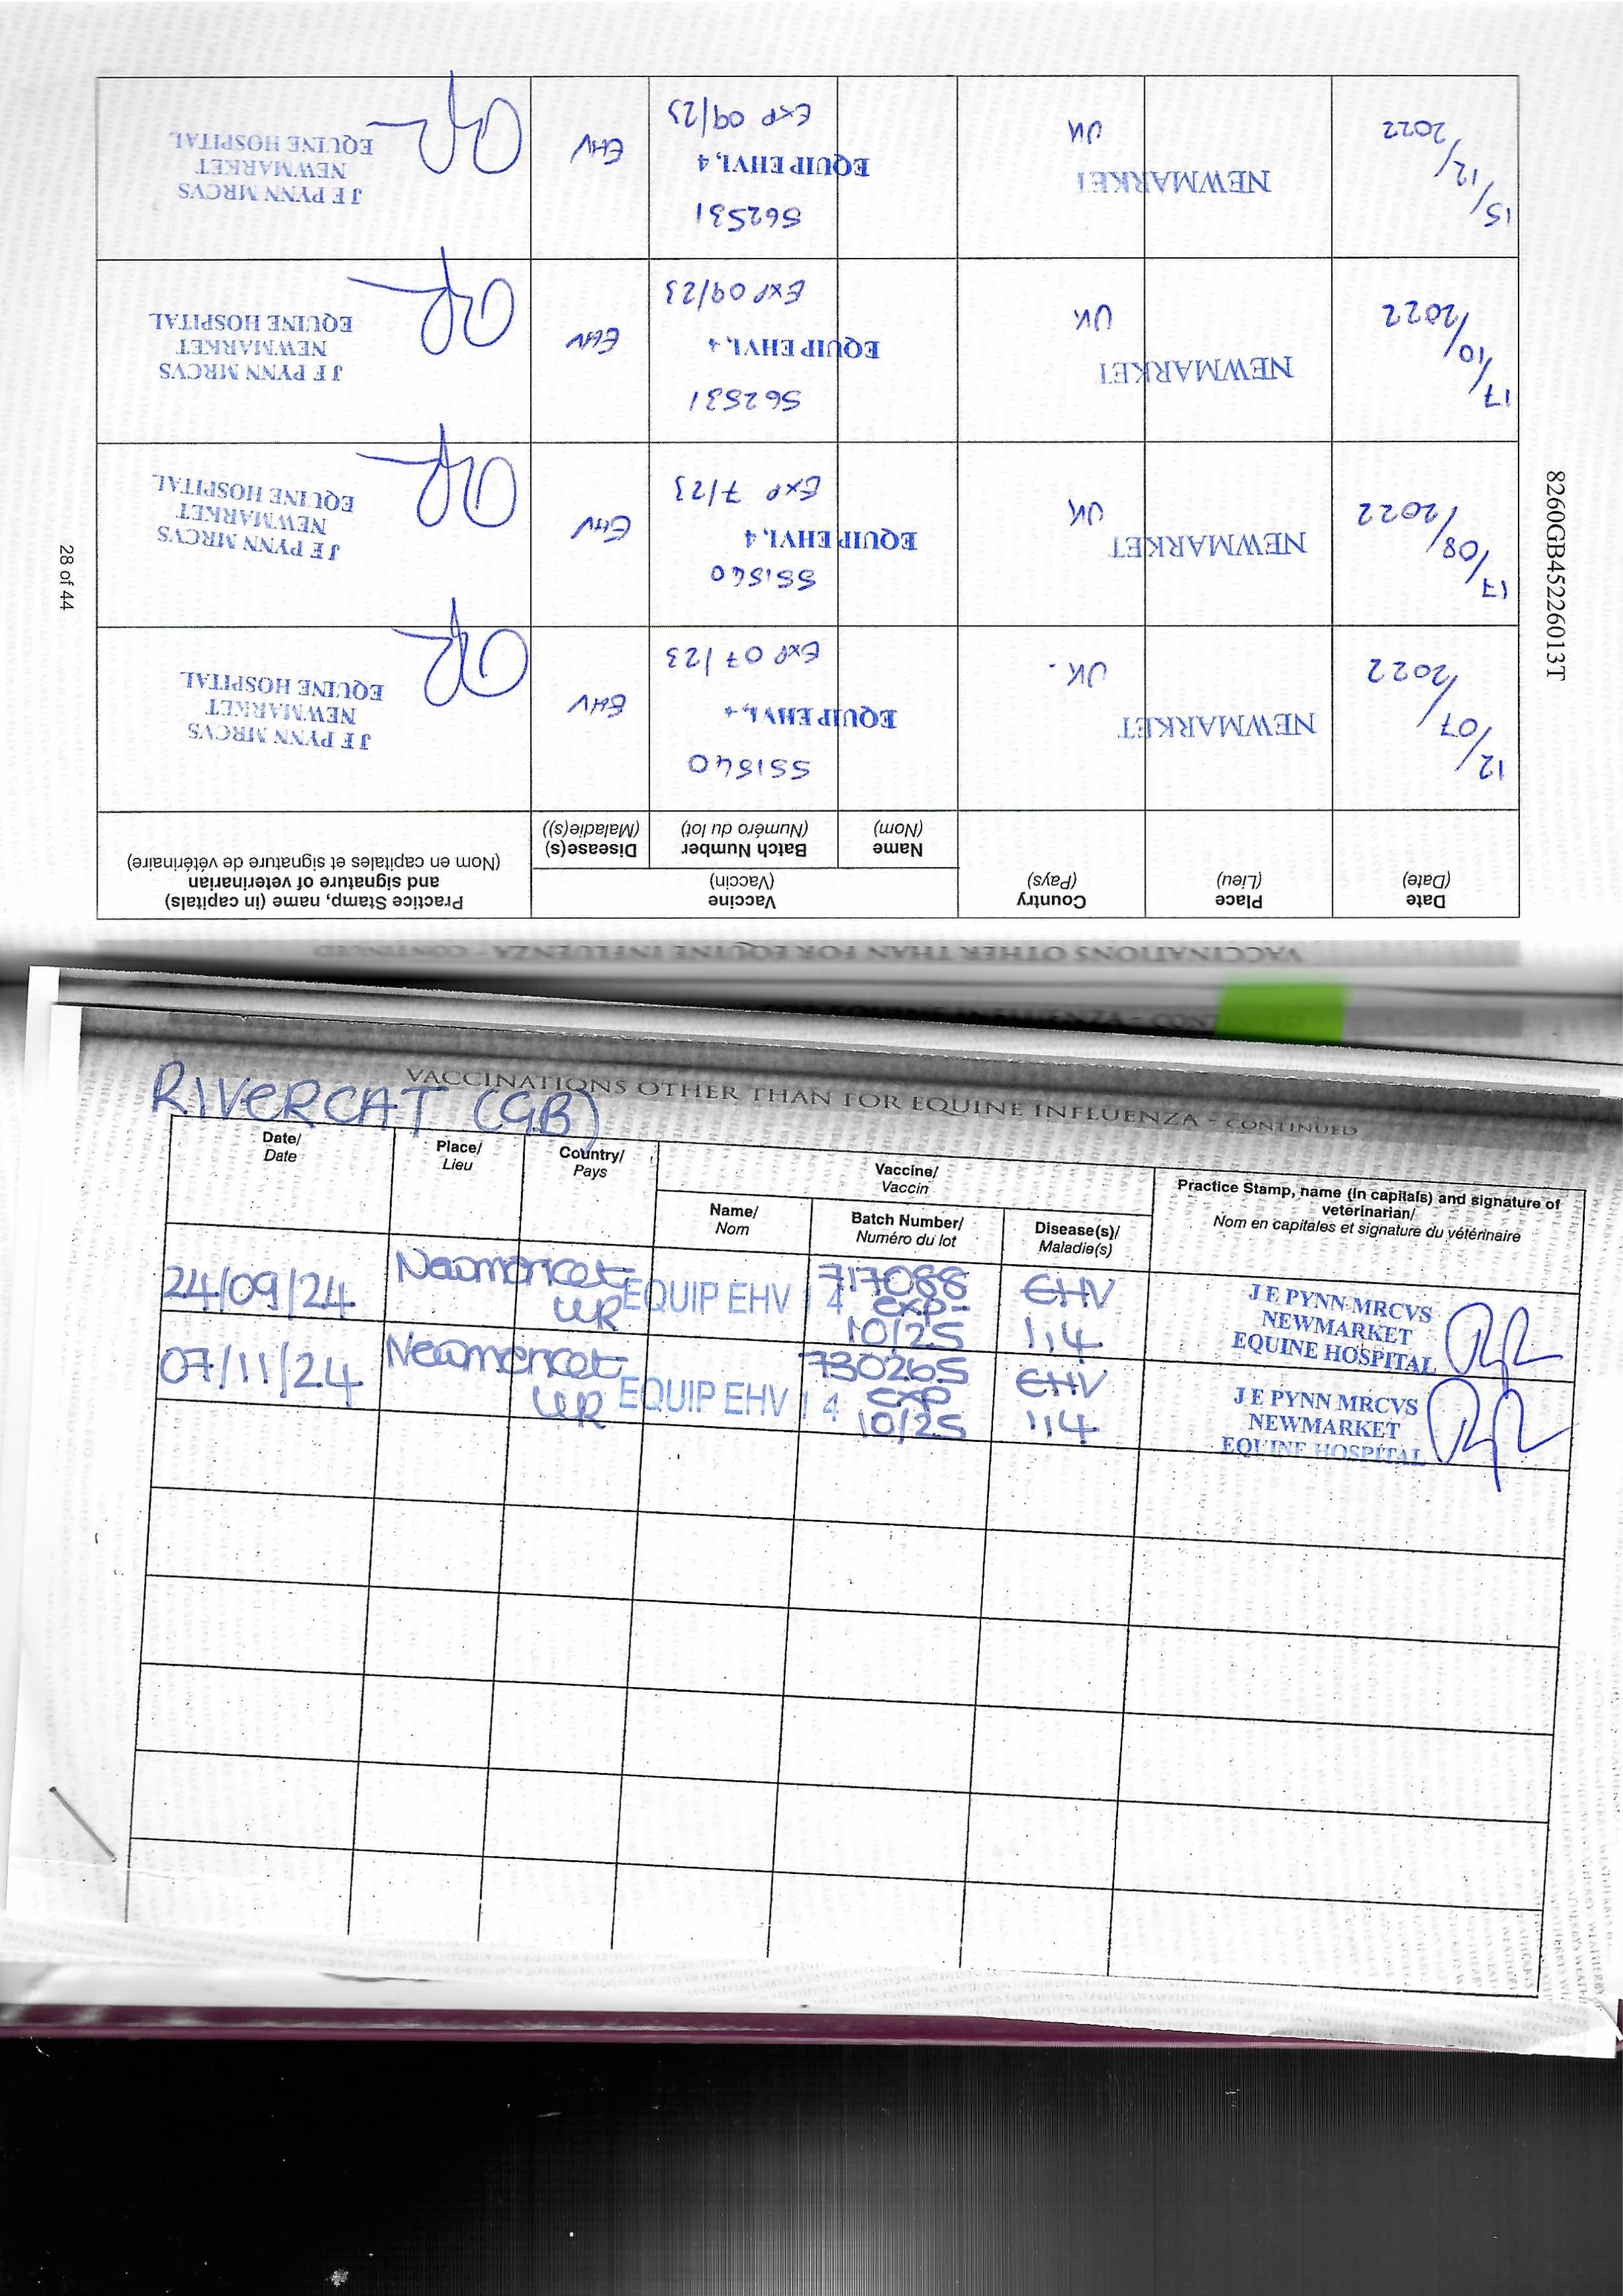 VACCINATIONS OTHER THAN FOR EQUINE INFLUENZA - CONTINUED
Date
(Date)
Place
(Lieu)
Country
(Pays)
Vaccine
(Vaccin)
Name
(Nom)
Batch Number
(Numéro du lot)
Disease(s)
(Maladie(s))
Practice Stamp, name (in capitals)
and signature of veterinarian
(Nom en capitales et signature de vétérinaire)
12/07/2022
NEWMARKET
UK.
551540
EQUIP EHV1,4
Exp 07/23
EHV
J E PYNN MRCVS
NEWMARKET
EQUINE HOSPITAL
17/08/2022
NEWMARKET
UK
551540
EQUIP EHV1,4
Exp 7/23
EHV
J E PYNN MRCVS
NEWMARKET
EQUINE HOSPITAL
17/10/2022
NEWMARKET
UK
562531
EQUIP EHV1,4
Exp 09/23
EHV
J E PYNN MRCVS
NEWMARKET
EQUINE HOSPITAL
15/12/2022
NEWMARKET
UK
562531
EQUIP EHV1,4
Exp 09/23
EHV
J E PYNN MRCVS
NEWMARKET
EQUINE HOSPITAL
28 of 44
8260GB45226013T
RIVERCAT (GB)
VACCINATIONS OTHER THAN FOR EQUINE INFLUENZA - CONTINUED
Date/
Date
Place/
Lieu
Country/
Pays
Vaccine/
Vaccin
Name/
Nom
Batch Number/
Numéro du lot
Disease(s)/
Maladie(s)
Practice Stamp, name (in capitals) and signature of
veterinarian/
Nom en capitales et signature du vétérinaire
24/09/24
Newmarket
UK
EQUIP EHV 1 4
717088
exp-
10/25
EHV
1,4
J E PYNN MRCVS
NEWMARKET
EQUINE HOSPITAL
07/11/24
Newmarket
UK
EQUIP EHV 1 4
730265
exp
10/25
EHV
1,4
J E PYNN MRCVS
NEWMARKET
EQUINE HOSPITAL